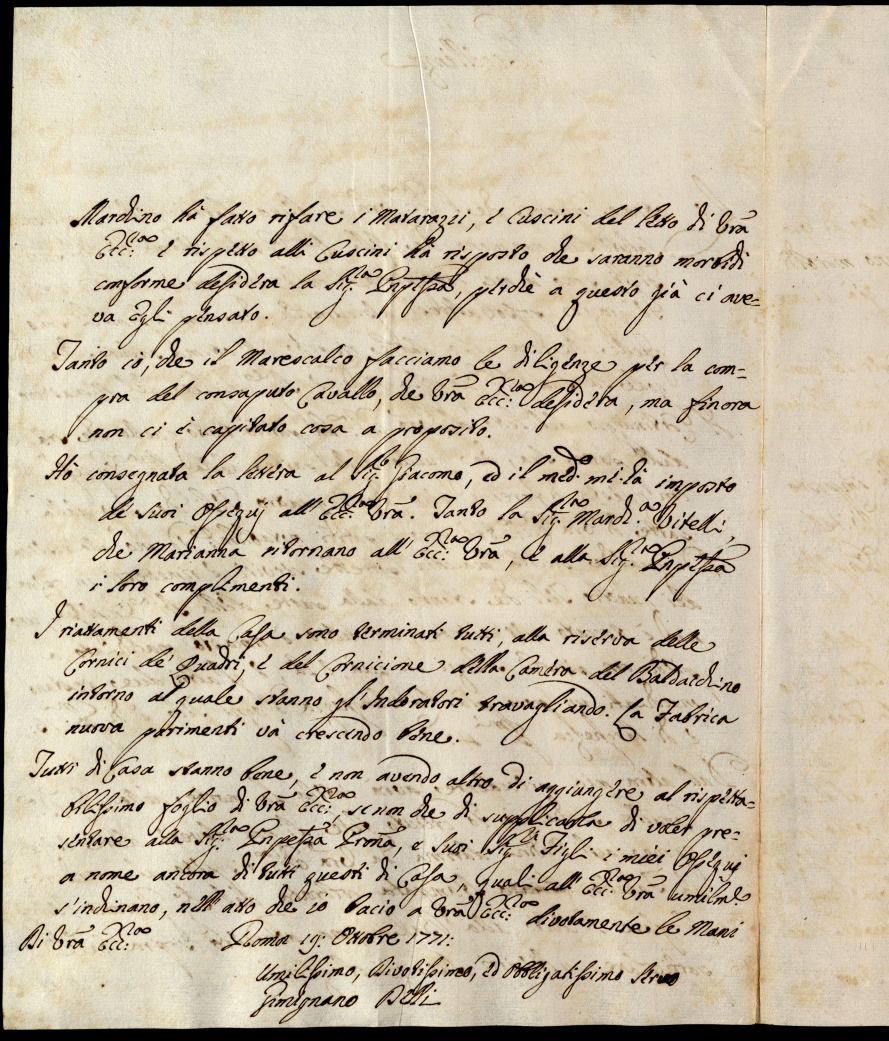 Marchino hà fatto rifare i Matarazzi, e Cuscini del letto di Vrā
Ecc:za e rispetto alli Cuscini hà risposto che saranno morbidi
conforme desidera la Sig.ra Pnpessa, perchè a questo già ci ave=
va Egli pensato.
Tanto io, che il Marescalco facciamo le diligenze per la com=
pra del consaputo Cavallo, che Vrā Ecc:za desidera, ma finora
non ci è capitato cosa a proposito.
Hò consegnata la lettera al Sig.r Giacomo, ed il med.o mi hà imposto
de suoi Ossequj all' Ecc:za Vrā. Tanto la Sig.ra March.a Vitelli,
che Marianna ritornano all' Ecc:za Vrā, e alla Sig.ra Pnpessa
i loro complimenti.
I riattamenti della Casa sono terminati tutti, alla riserva delle
Cornici de' Quadri, e del Cornicione della Camera del Baldachino
intorno al quale stanno gl'Indoratori travagliando. La Fabrica
nuova parimenti và crescendo bene.
Tutti di Casa stanno bene, e non avendo altro di aggiungere al rispetta=
bilissimo foglio di Vrā Ecc:za, se non che di supplicarla di voler pre=
sentare alla Sig.ra Pnpessa Pronā, e suoi Sig.ri Figli i miei Ossequj
a nome ancora di tutti questi di Casa, quali all' Ecc:za Vrā umilm.e
s'inchinano, nell'atto che io bacio a Vrā Ecc:za divotamente le Mani
Di Vrā Ecc:za Roma 19: Ottobre 1771:
Umilissimo, Divotissimo, ed Obbligatissimo Servo
Gimignano Belli